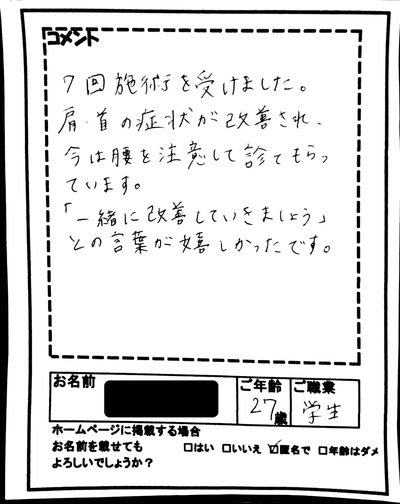 コメント
7回施術を受けました。
肩・首の症状が改善され、
今は腰を注意して診てもらっ
ています。
「一緒に改善していきましょう」
との言葉が嬉しかったです。
お名前
ご年齢
27歳
ご職業
学生
ホームページに掲載する場合
お名前を載せても □はい □いいえ ☑匿名で □年齢はダメ
よろしいでしょうか?